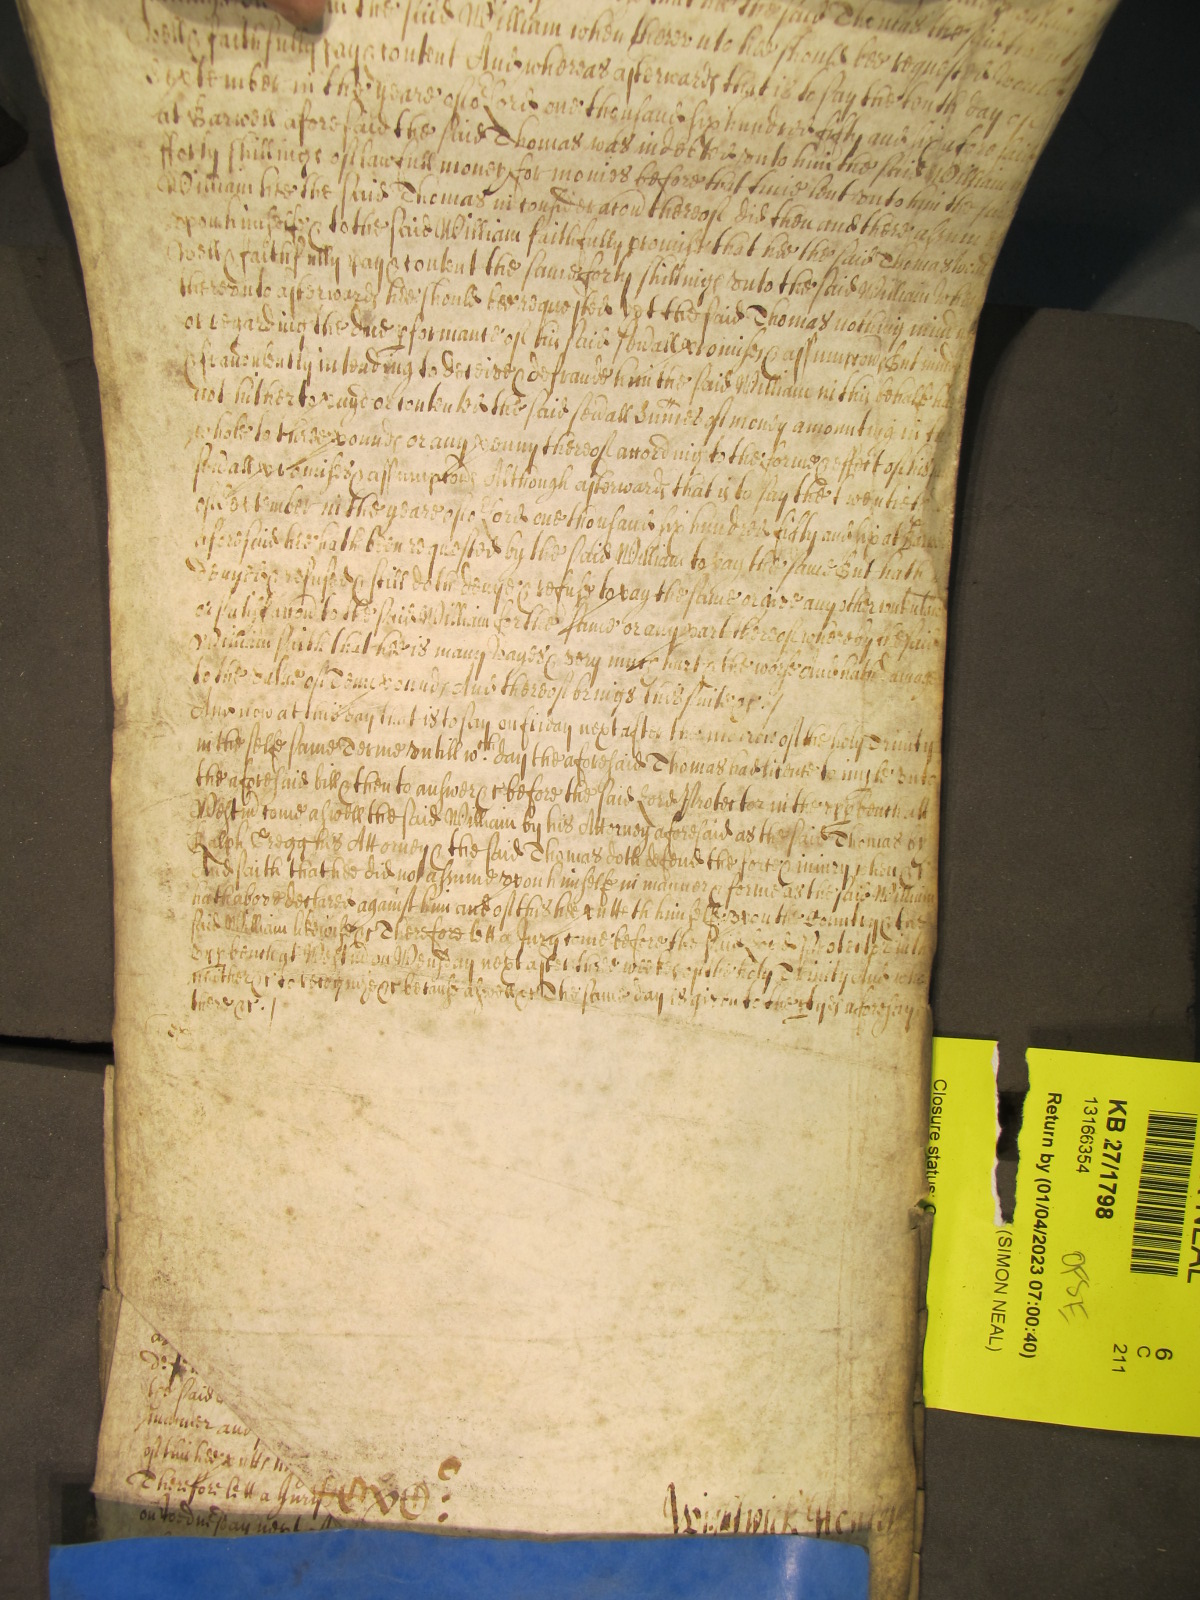 in the said William when thereunto hee should bee requested would
well & faithfully pay & content And whereas afterwards that is to say the tenth day of
in the yeare of oʳ Lord one thousand six hundred fifty and six aforesaid
at Barwell aforesaid the said Thomas was indebted unto him the said William in
fforty shillings of lawfull money for monies before that time lent unto him the said
William hee the said Thomas in consideracon thereof did then and there assume
upon himselfe & to the said William faithfully promise that hee the said Thomas would
well & faithfully pay & content the same forty shillings unto the said William when
thereunto afterwards hee should bee requested Yet the said Thomas nothing minding
or regarding the due pformance of his said sevall promises & assumptions But minding
& fraudulently intending to deceive & defraude him the said William in this behalfe hath
not hitherto payd or contented the said sevall summes of money amounting in the
whole to three pounds or any penny thereof according to the forme & effect of his
sevall promises & assumptions Although afterwards that is to say the twentieth
of in the yeare of oʳ Lord one thousand six hundred fifty and six at Barwell
aforesaid hee hath been requested by the said William to pay the same But hath
denyed & refused & still doth denye & refuse to pay the same or give any other
or to the said William for the same or any part thereof whereby the said
William saith that hee is many wayes & very much hurt & the worse And hath damage
to the value of Tenn pounds And thereof brings this suite &c /
And now at this day that is to say on friday next after the morrow of the holy Trinity
in the selfe same Terme untill wᶜʰ day the aforesaid Thomas had licence to imple unto
the aforesaid bill & then to answer &c before the said Lord Protector in the upper bench att
Westmʳ come aswell the said William by his Attorney aforesaid as the said Thomas by
Ralph Gregg his Attorney & the said Thomas doth defend the force & iniury when &c
And saith that hee did not assume upon himselfe in manner & forme as the said William
hath above declared against him and of this hee putteth himselfe upon the Country & the
said William likewise &c Therefore lett a Jury come before the said Lord Protector in the
upper bench att Westmʳ on Wensday next after three weekes of the holy Trinity And who
neither &c to recognize &c because aswell &c The same day is given to the ptyes aforesayd
there &c /
the said
manner and
of this hee putteth
Therefore lett a Jury
on Wednesday next
Wightwick
Closure status:
KB 27/1798
13166354
Return by (01/04/2023 07:00:40)
(SIMON NEAL)
NEAL
6
C
211